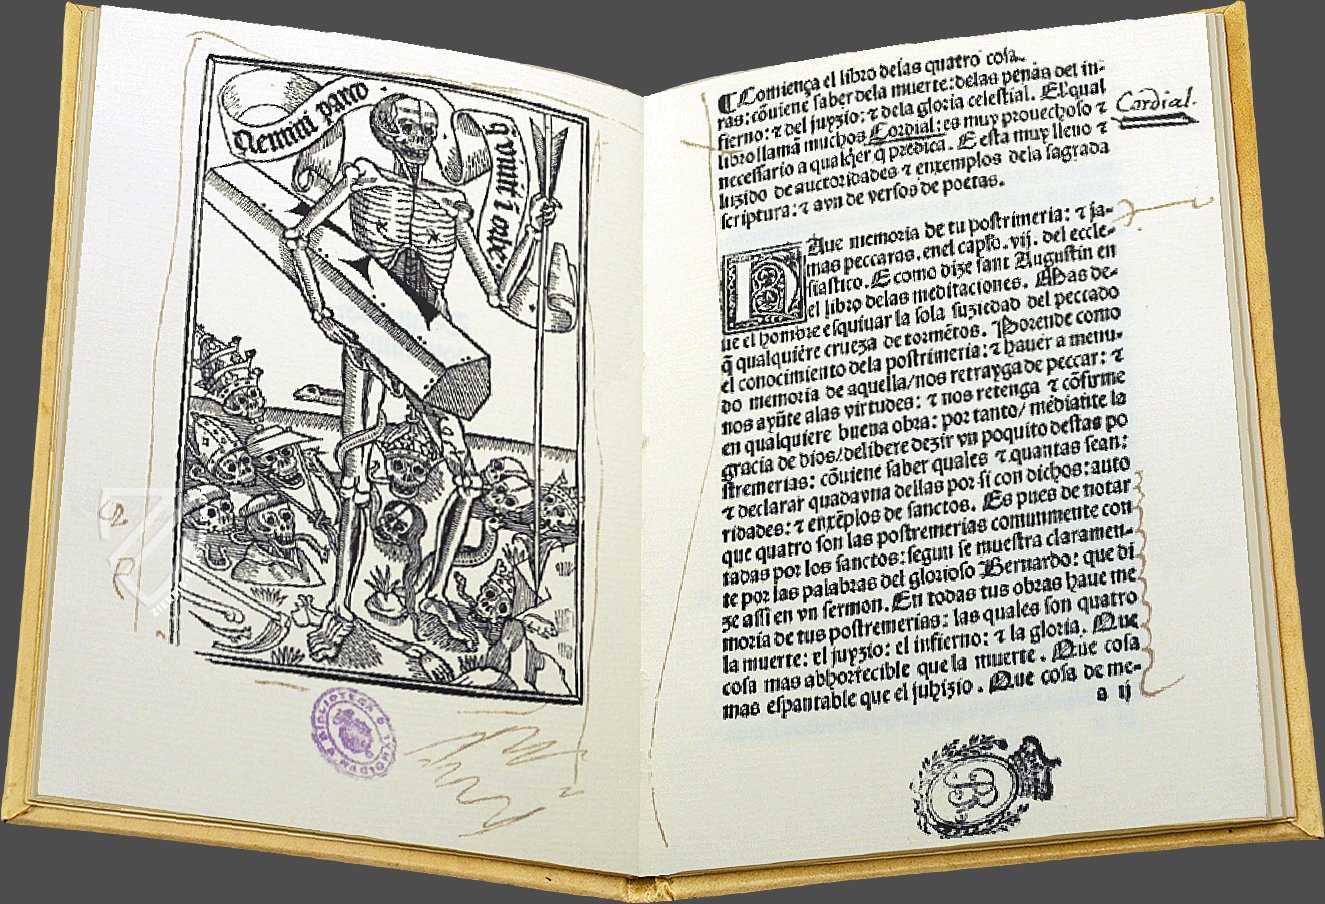 Nemini parco
q̃ viuit i orbe
¶ Comiença el libro delas quatro cosa
ras: cõuiene saber dela muerte: delas penas del in-
fierno: ⁊ del juyzio: ⁊ dela gloria celestial. El qual
libro llamã muchos Cordial: es muy prouechoso ⁊
necessario a qualq̃er q̃ predica. E esta muy lleno ⁊
luzido de auctoridades ⁊ enxemplos dela sagrada
scriptura: ⁊ avn de versos de poetas.
Cordial.
Aue memoria de tu postrimeria: ⁊ ja-
mas peccaras. enel capło. vij. del eccle-
siastico. E como dize sant Augustin en
el libro delas meditaciones. Mas de-
ue el hombre esquiuar la sola suziedad del peccado
q̃ qualquiere crueza de tormẽtos. Porende como
el conocimiento dela postrimeria: ⁊ hauer a menu-
do memoria de aquella/nos retrayga de peccar: ⁊
nos ayũte alas virtudes: ⁊ nos retenga ⁊ cõfirme
en qualquiere buena obra: por tanto/ mediãte la
gracia de dios/delibere dezir vn poquito destas po
stremerias: cõuiene saber quales ⁊ quantas sean:
⁊ declarar quadavna dellas por si con dichos: auto
ridades: ⁊ enxẽplos de sanctos. Es pues de notar
que quatro son las postremerias comunmente con
tadas por los sanctos: segun se muestra claramen-
te por las palabras del glorioso Bernardo: que di
ze assi en vn sermon. En todas tus obras haue me
moria de tus postremerias: las quales son quatro
la muerte: el juyzio: el infierno: ⁊ la gloria. Que
cosa mas abhorrecible que la muerte. Que cosa
mas espantable que el juhizio. Que cosa de me-
a ij